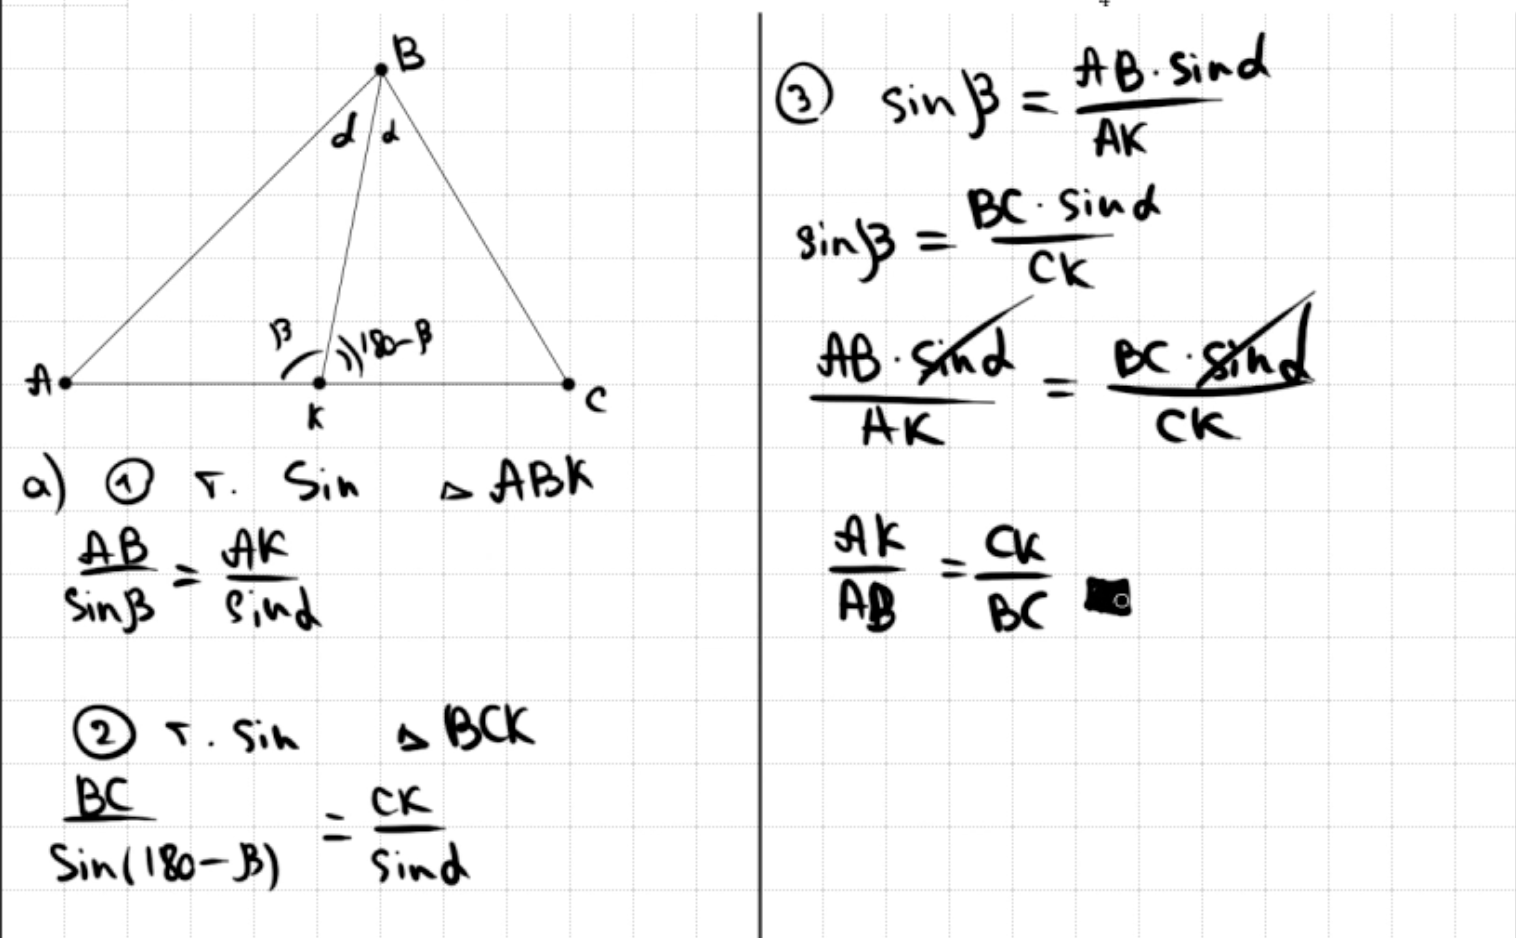 B
α α
β 180-β
A
K
C
a) ① т. Sin △ ABK
AB/sinβ = AK/sinα
② т. Sin △ BCK
BC/Sin(180-β) = CK/sinα
③ sinβ = AB·sinα/AK
sinβ = BC·sinα/CK
AB·sinα/AK = BC·sinα/CK
AK/AB = CK/BC